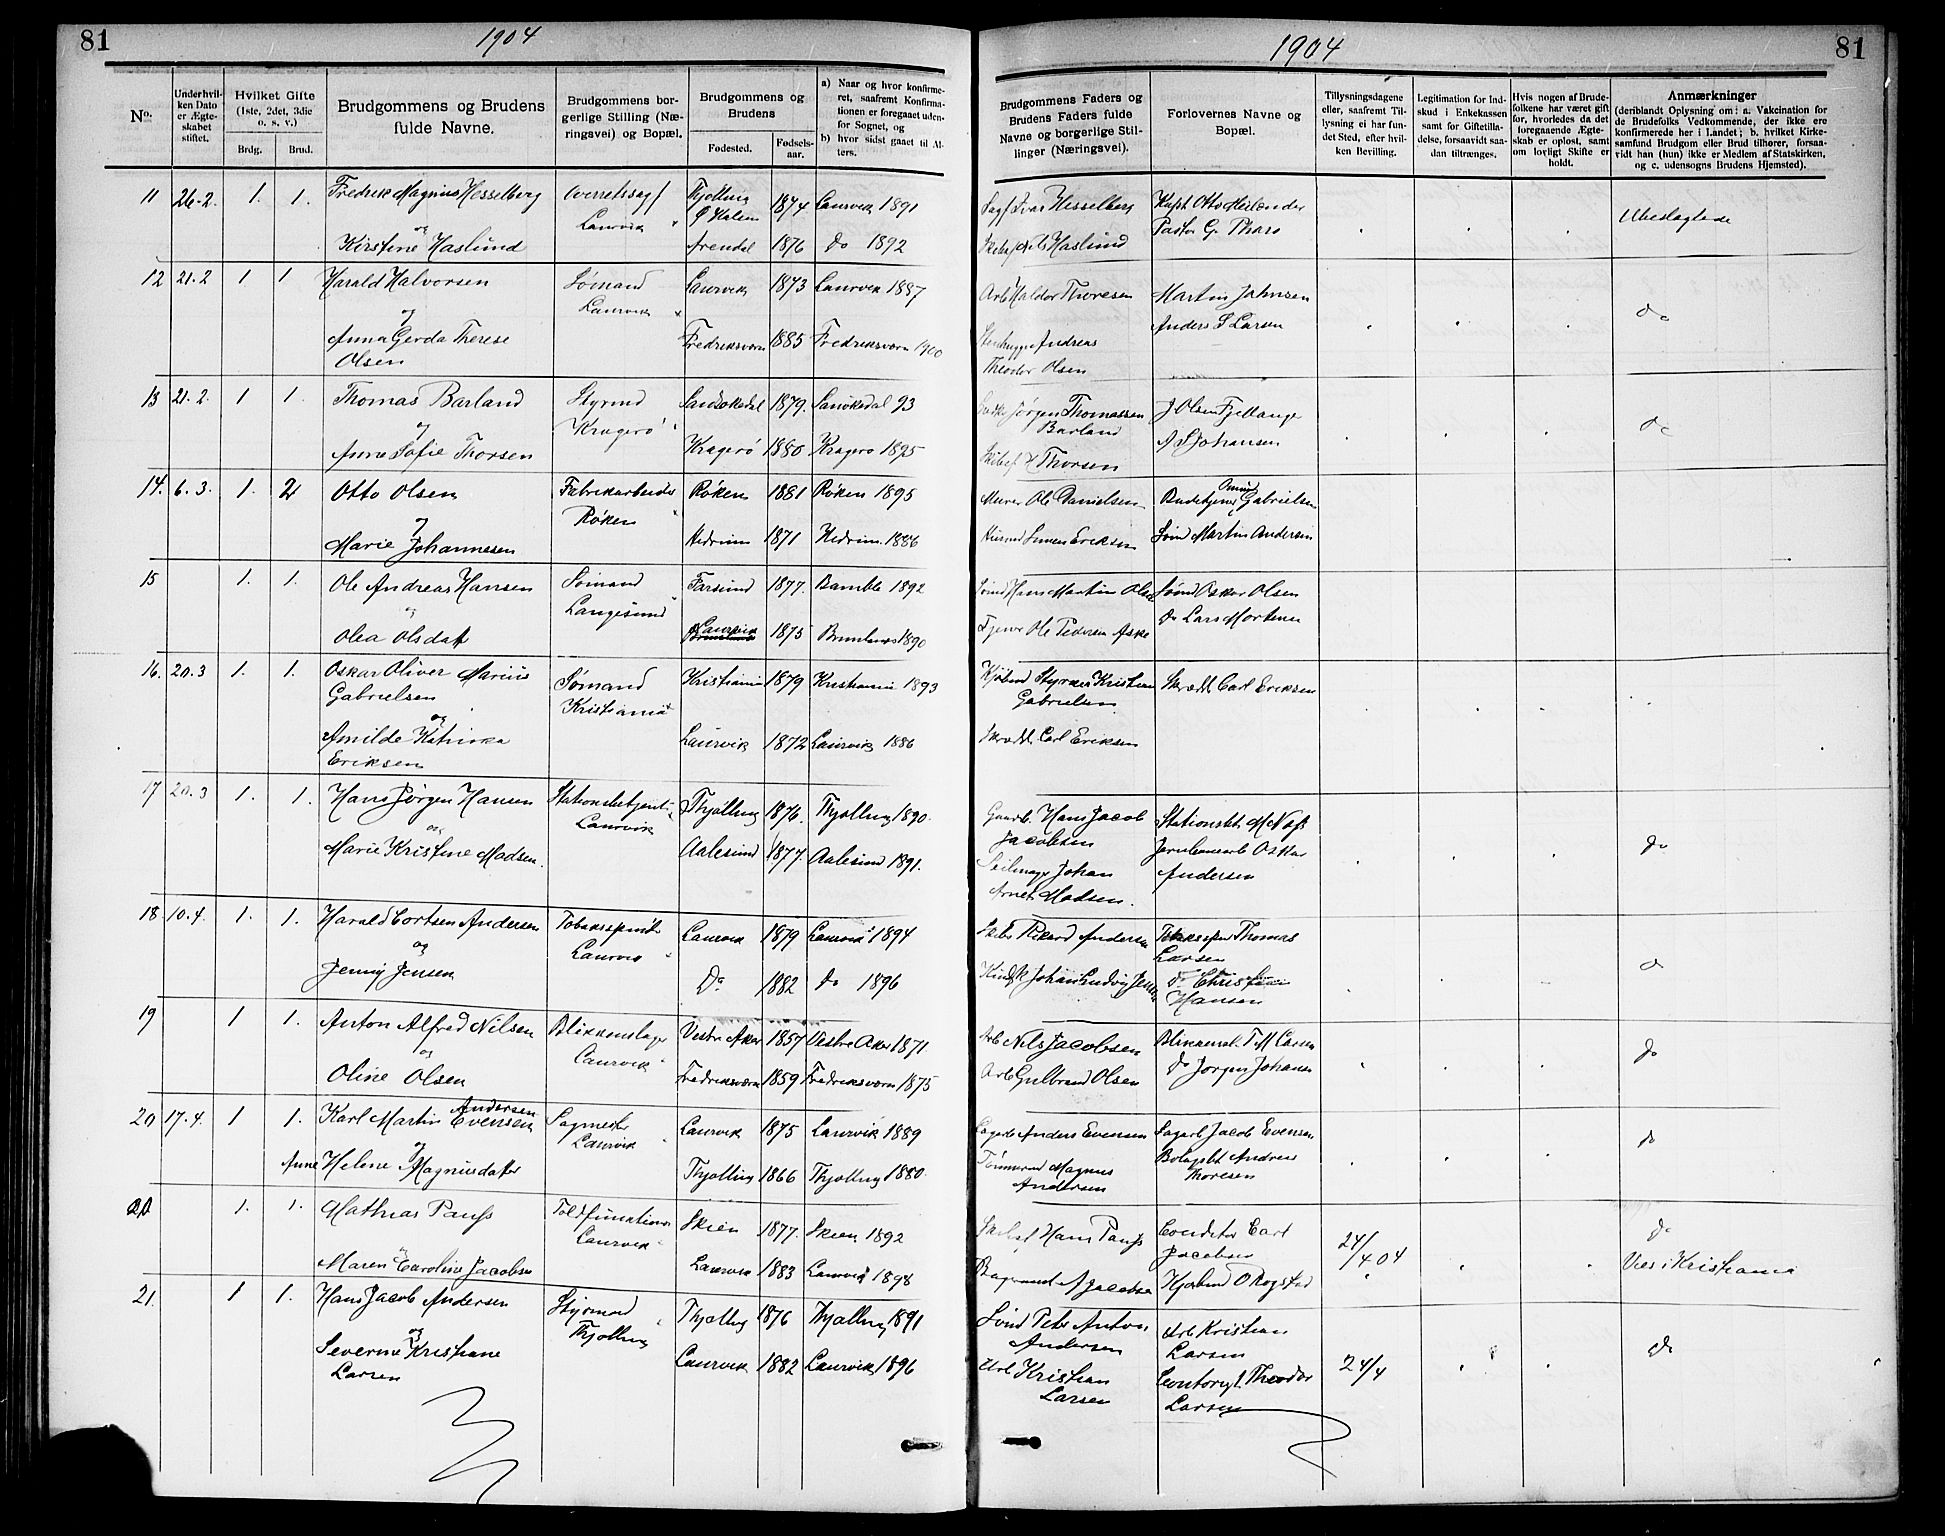 81
1904
No.
Underhvil-
ken Dato
er Ægte-
skabet
stiftet.
Hvilket Gifte
(1ste, 2det, 3die
o. s. v.)
Brdg.
Brud.
Brudgommens og Brudens
fulde Navne.
Brudgommens bor-
gerlige Stilling (Næ-
ringsvei) og Bopæl.
Brudgommens og
Brudens
Fødested.
Fødsels-
aar.
a) Naar og hvor konfirme-
ret, saafremt Konfirma-
tionen er foregaaet uden-
for Sognet, og
b) hvor sidst gaaet til Al-
ters.
11 26-2. 1. 1. Fredrik Magnus Hesselberg Overretssagf Thjølling 1874 Laurvik 1891
og Laurvik
Kirstine Haslund Arendal 1876 do 1892
12 21.2 1 1 Harald Halvorsen Sømand Laurvik 1873 Laurvik 1887
og Laurvik
Anna Gerda Therese Fredriksværn 1885 Fredriksværn 1900
Olsen
13 21.2. 1 1. Thomas Barland Styrmd Sandøkedal 1879. Sanøkedal 93
og Kragerö
Anne Sofie Thorsen Kragerö 1880 Kragerø 1895
14. 6.3. 1. 2 Otto Olsen Fabrikarbeider Røken 1881 Røken 1895
og Røken
Marie Johannesen Hedrum 1871 Hedrum. 1886
15 1. 1. Ole Andreas Hansen Sømand Farsund 1877. Bamble 1892
og Langesund
Olea Olsdatt Laurvik 1875 Brunlanæs 1890
16. 20.3 1. 1. Oskar Oliver Marius Sømand Kristiania 1879 Kristiania 1893
Gabrielsen Kristiania
og
Amilde Katrinka Laurvik 1872 Laurvik 1886
Eriksen
17 20.3 1. 1. Hans Jørgen Hansen Stationsbetjent Thjølling 1876. Thjølling 1890.
og Laurvik
Marie Kristine Madsen. Aalesund 1877. Aalesund 1891.
18 10.4. 1. 1. Harald Cortsen Andersen Tobaksspinder Laurvik 1879 Laurvik 1894
og Laurvik
Jenny Jensen Do 1882 do 1896
19 1 1. Anton Alfred Nilsen Blikkenslager Vestre Aker 1857 Vestre Aker 1871.
og Laurvik
Oline Olsen Fredriksværn 1859 Fredriksværn 1875
20 17.4. 1 1. Karl Martin Andersen Evensen Sagmester Laurvik 1875 Laurvik 1889
og Laurvik
Anne Helene Magnusdatter Thjølling 1866 Thjølling 1880.
1. 1. Mathias Pauss Toldfunktionær Skien 1877. Skien 1892
og Laurvik
Maren Caroline Jacobsen Laurvik 1883 Laurvik 1898
21. 1 1. Hans Jacob Andersen Styrmand Thjølling 1876 Thjølling 1891
og Thjølling
Severine Kristiane Laurvik 1882 Laurvik 1896
Larsen
1904
81
Brudgommens Faders og
Brudens Faders fulde
Navne og borgerlige Stil-
linger (Næringsvei).
Forlovernes Navne og
Bopæl.
Tillysningsdagene
eller, saafremt Til-
lysning ei har fun-
det Sted, efter hvil-
ken Bevilling.
Legitimation for Ind-
skud i Enkekassen
samt for Giftetilla-
delse, forsaavidt saa-
dan tiltrænges.
Hvis nogen af Brude-
folkene har været gift
før, hvorledes da det
foregaaende Ægte-
skab er opløst, samt
om lovligt Skifte er
holdt.
Anmærkninger
(deriblandt Oplysning om: a. Vakcination for
de Brudefolks Vedkommende, der ikke ere
konfirmerede her i Landet; b. hvilket Kirke-
samfund Brudgom eller Brud tilhører, forsaa-
vidt han (hun) ikke er Medlem af Statskirken,
og c. udensogns Brudens Hjemsted).
Sagf Ivar Hesselberg Kapt Otto Meilænder Ubeslægtede
Haslund Pastor G. Thars
Arb Haldor Thoresen Martin Johnsen do
Andreas Anders S Larsen
Theodor Olsen
Jørgen Thomassen J Olsen Fjellange do
Barland A S Johansen
Skibsf H Thorsen
Murer Ole Danielsen Gabrielsen
Simen Eriksen Sømd Martin Andersen
Sømd Hans Martin Olsen Sømd Oskar Olsen
Tjener Ole Pedersen Aske do Lars Mortensen
Kjøbmd Kristian Skrædd. Carl Eriksen
Gabrielsen
Skrædd. Carl Eriksen
Gaardb. Hans Jacob Stationsbt. M Næss
Jacobsen Jernbanearb Oskar do
Seilmager Johan Andersen
Arnet Madsen.
Rikard Andersen Thomas
Larsen do
Johan Ludvig Jensen do Christian
Hansen
Arb Nils Jacobsen Blikkensl. T. M Larsen do
Arb Gulbrand Olsen do Jørgen Johansen
Sagarb Anders Evensen Sagarb Jacob Evensen do
Tømmermd Magnus Andreas
Andersen Thoresen
Hans Pauss Conditor Carl 24/4 04 do
Jacobsen Vies i Kristiania
A Jacobsen Kjøbmd O Rogstad
Sømd Peter Anton Arb Kristian
Andersen Larsen do
Arb Kristian Theodor 24/4
Larsen Larsen